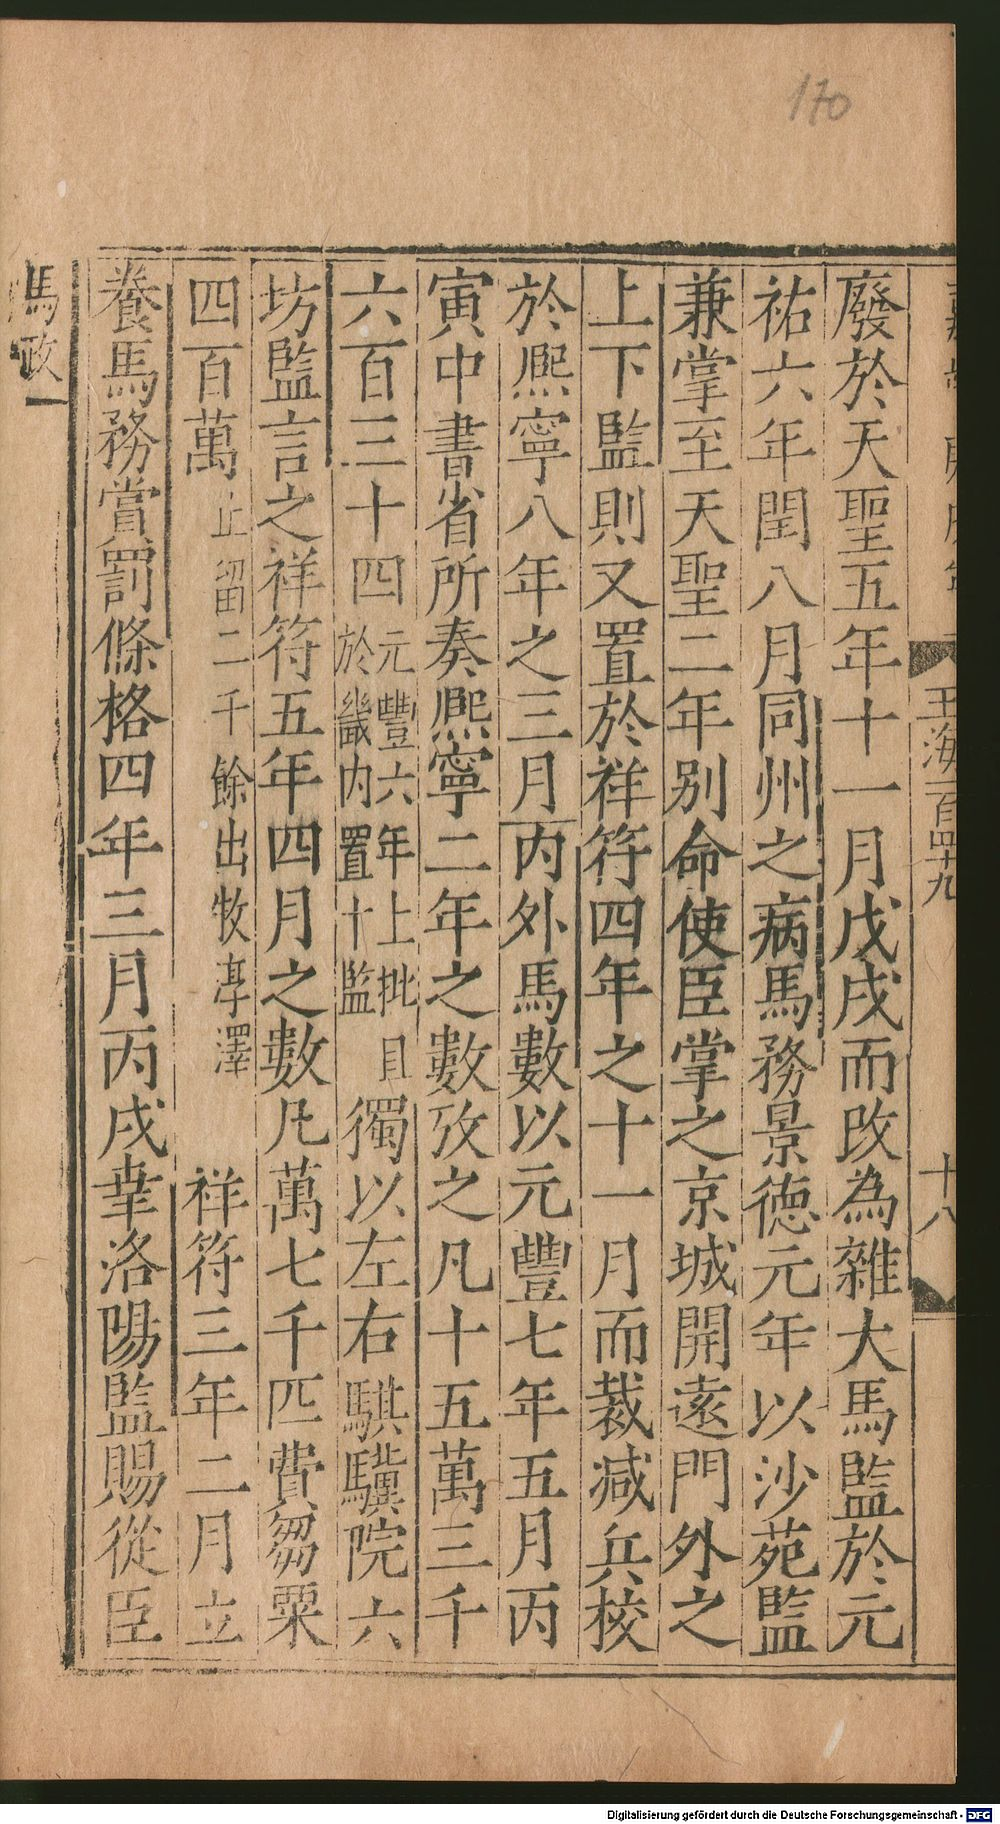 170
玉海一百四十九
十八
廢於天聖五年十一月戊戌而改為雜大馬監於元
祐六年閏八月同州之病馬務景德元年以沙苑監
兼掌至天聖二年别命使臣掌之京城開遠門外之
上下監則又置於祥符四年之十一月而裁减兵校
於熈寧八年之三月内外馬數以元豐七年五月丙
寅中書省所奏熈寧二年之數攷之凡十五萬三千
六百三十四元豐六年上批且於畿内置十監獨以左右騏驥院六
坊監言之祥符五年四月之數凡萬七千匹費芻粟
四百萬止留二千餘出牧淳澤祥符三年二月立
養馬務賞罰條格四年三月丙戌幸洛陽監賜從臣
馬政
Digitalisierung gefördert durch die Deutsche Forschungsgemeinschaft - DFG